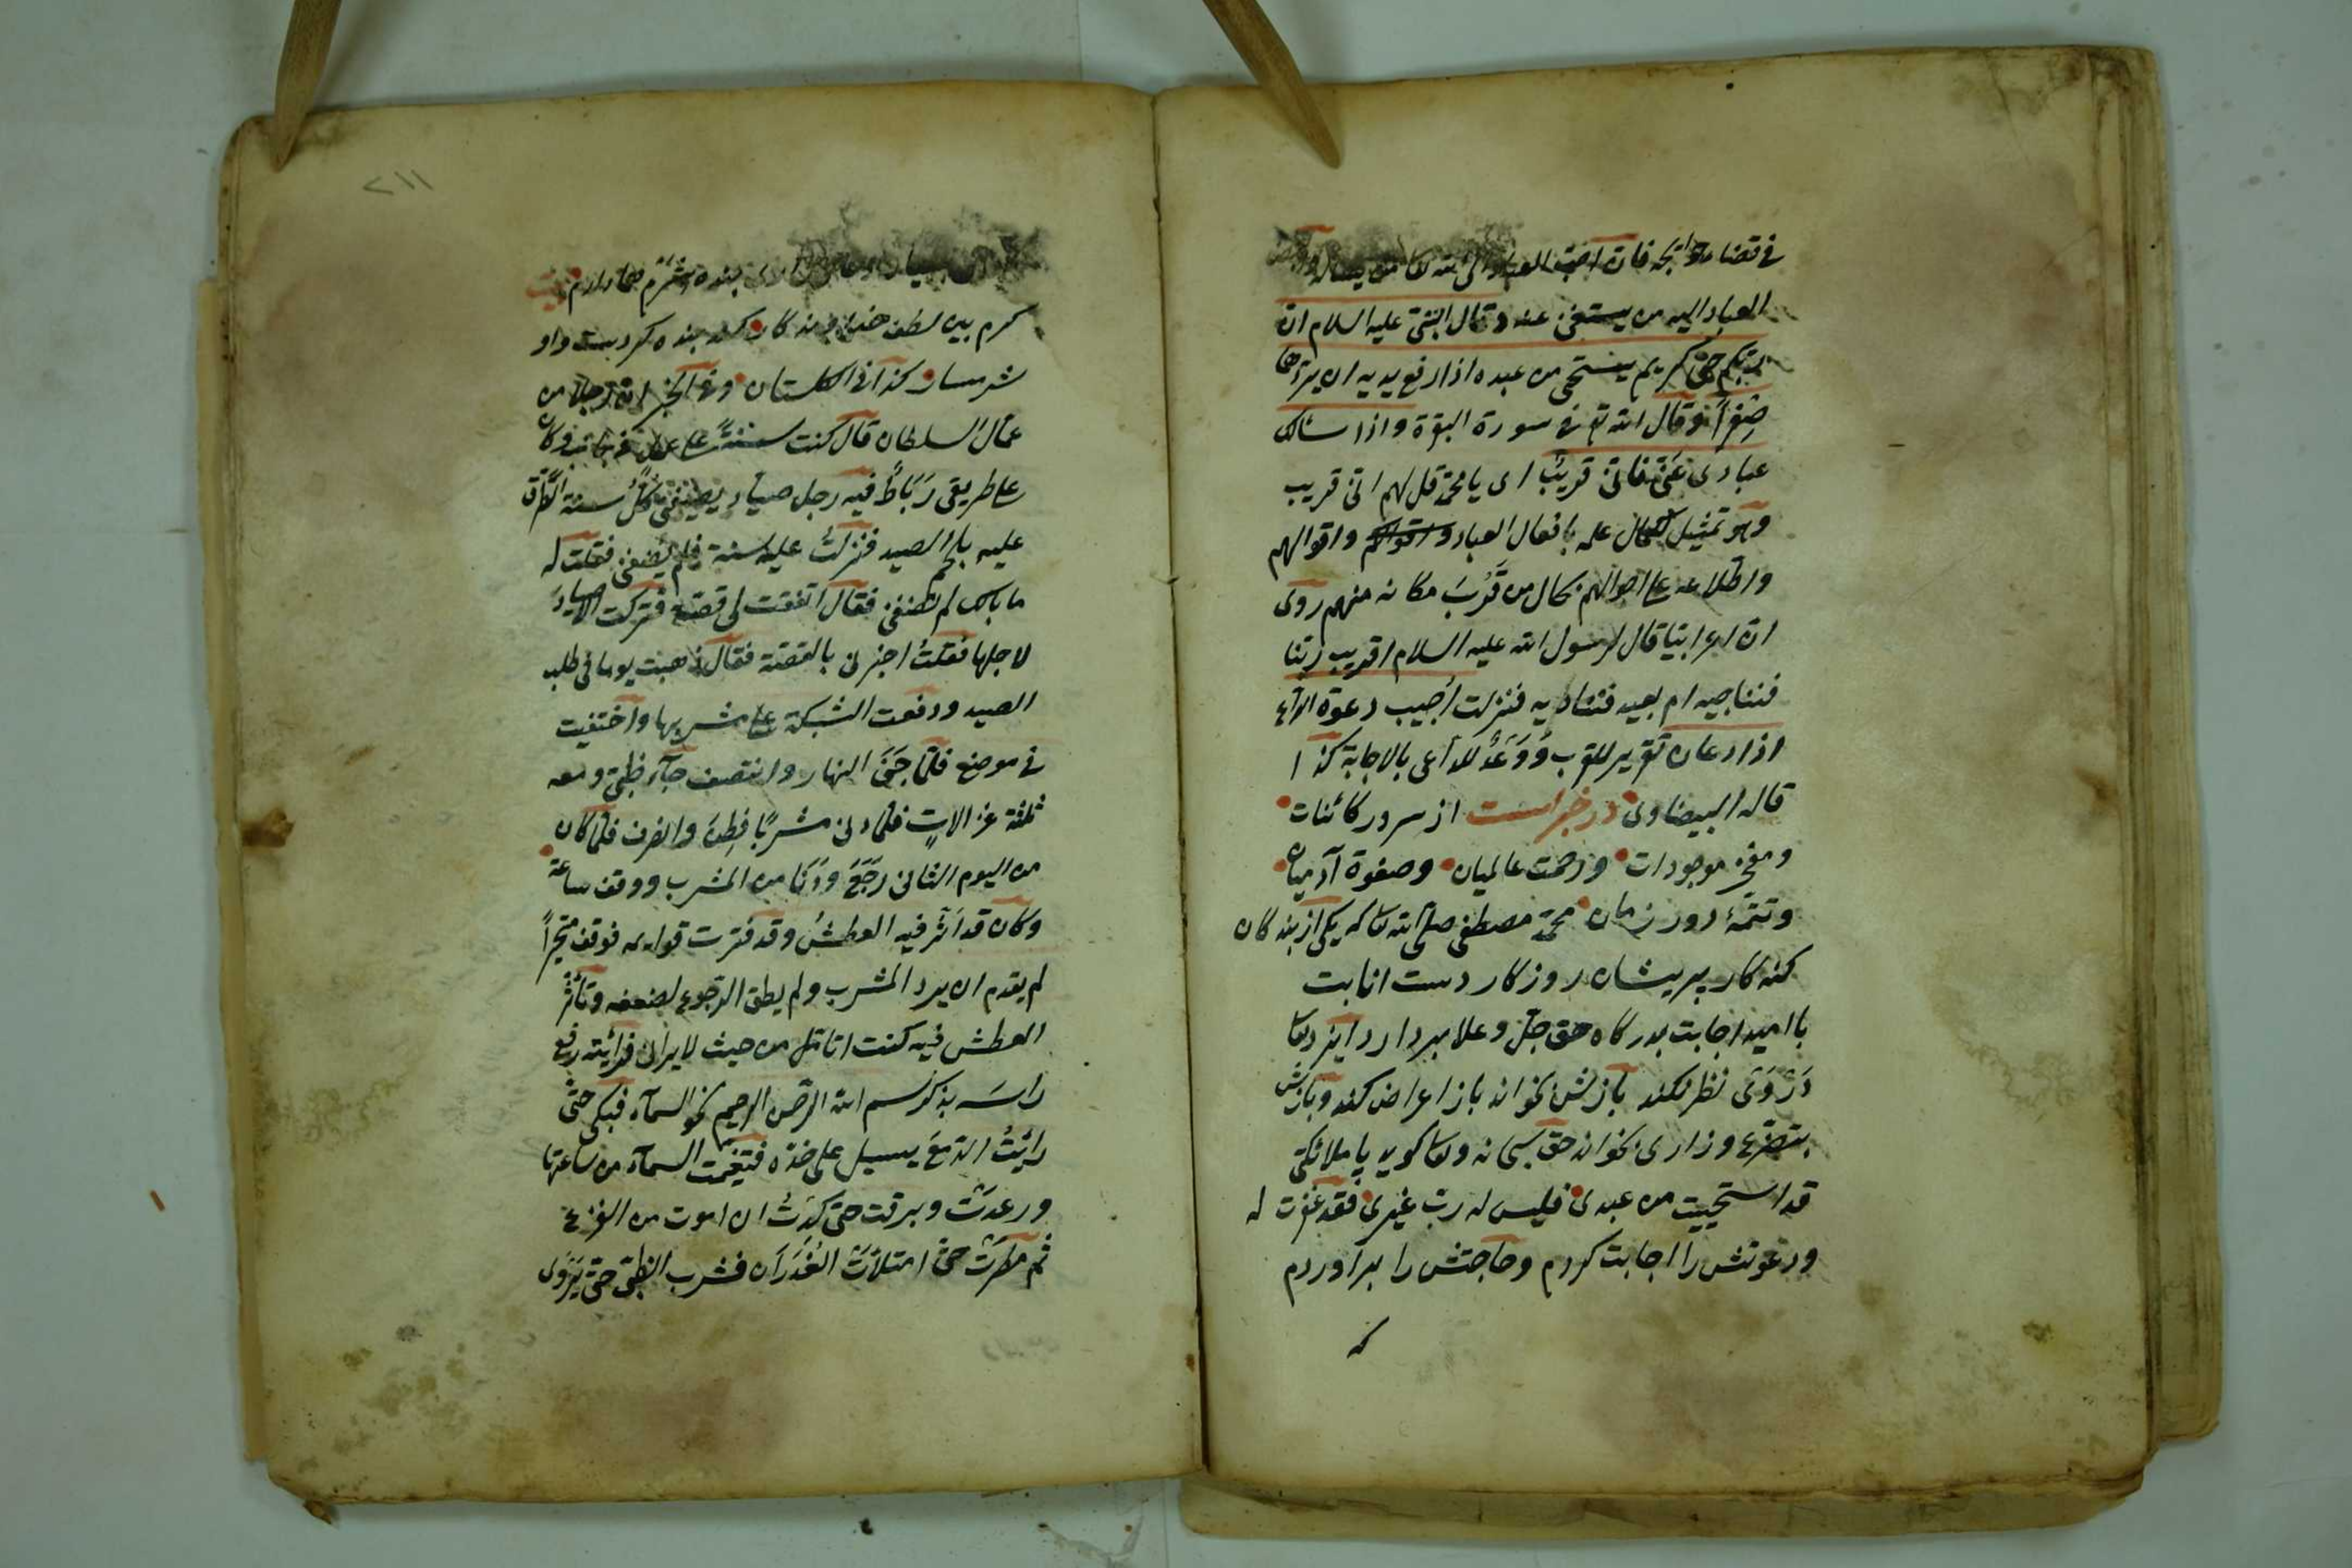 في قضاء حوائجه فان احب العباد الى الله تعا من يساله
العباد اليه من يستغنى عنه وقال النبى عليه السلام ان
ربكم حيّ كريم يستحيى من عبده اذا رفع يديه ان يردّها
صِفراً وقال الله تع في سورة البقرة واذا سئالك
عبادى عنّى فانّى قريبٌ اى يا محمّد قل لهم انّى قريب
وهو تمثيل لكمال علمه بافعال العباد واقوالهم واقوالهم
واطّلاعه على احوالهم بحال من قَرُبَ مكانه منهم روى
ان اعرابيّا قال لرسول الله عليه السلام اقريب ربّنا
فنناجيه ام بعيد فنناديه فنزلت اُجيب دعوة الدّاع
اذا دعان تقرير للقرب وَوَعْدٌ للدّاعى بالاجابة كذا
قاله البيضاوى در خبر است از سرور كائنات
ومفخر موجودات ورحمت عالميان وصفوة آدميان
وتتمّهٔ دور زمان محمّد مصطفى صلّى الله تعا كه يكى از بندگان
كنه كار پريشان روزكار دست انابت
با اميد اجابت بدركاه حق جلّ وعلا بردارد ايزد تعا
دَرْوَىْ نظر نكند بازش بخواند باز اعراض كند وبازش
بتضرّع وزارى بخواند حق سبحانه وتعا كويد يا ملائكتى
قد استحييت من عبدى فليس له ربّ غيرى فقد غفرت له
ودعوتش را اجابت كردم وحاجتش را برآوردم
كه
٢١١
بنده شرم همى دارم بيت
كرم بين ولطف خداوندكار كنه بنده كردست واو
شرمسار كذا في الكلستان وفي الخبر ان رجلاً من
عمّال السلطان قال كنت سنةً على عمل وكان
على طريقى رَبَاطٌ فيه رجل صيّاد يضيفنى كلّ سنة
عليه بلحم الصيد فنزلتُ عليه سنة فلم يضفنى فقلت له
ما بالك لم تضفنى فقال اتفقت لى قصّة فتركت الاصياد
لاجلها فقلتُ اخبرنى بالقصّة فقال ذهبت يوما فى طلب
الصيد ودفعت الشبكة على مشربها واختفيت
في موضع فلمّا حَمَىَ النهار وانتصف جآء ظبىٌ ومعه
ثلثة غزالاتٍ فلمّا دنى مشربًا فطن وانصرف فلمّا كان
من اليوم الثانى رَجَعَ ودَنَا من المشرب ووقف ساعة
وكان قد اَثَّر فيه العطشُ وقد فترت قوايمه فوقف متحيّراً
لم يقدم ان يرد المشرب ولم يطق الرّجوع لضعفه وتأثّر
العطش فيه كنت اتامّل من حيث لا يرانى فرأيته رفع
رأسَه بذكر بسم الله الرّحمن الرحيم نحو السمآء فبكى حتّى
رأيتُ الدّمعَ يسيل على خدّه فتغيّمت السمآء من ساعتها
ورعدَتْ وبرقت حتى كِدْتُ ان اموت من الفزع
ثم مطرَتْ حتى امتلاَتْ الغُدَرَان فشرب الظبىُ حتّى يَرْوَى